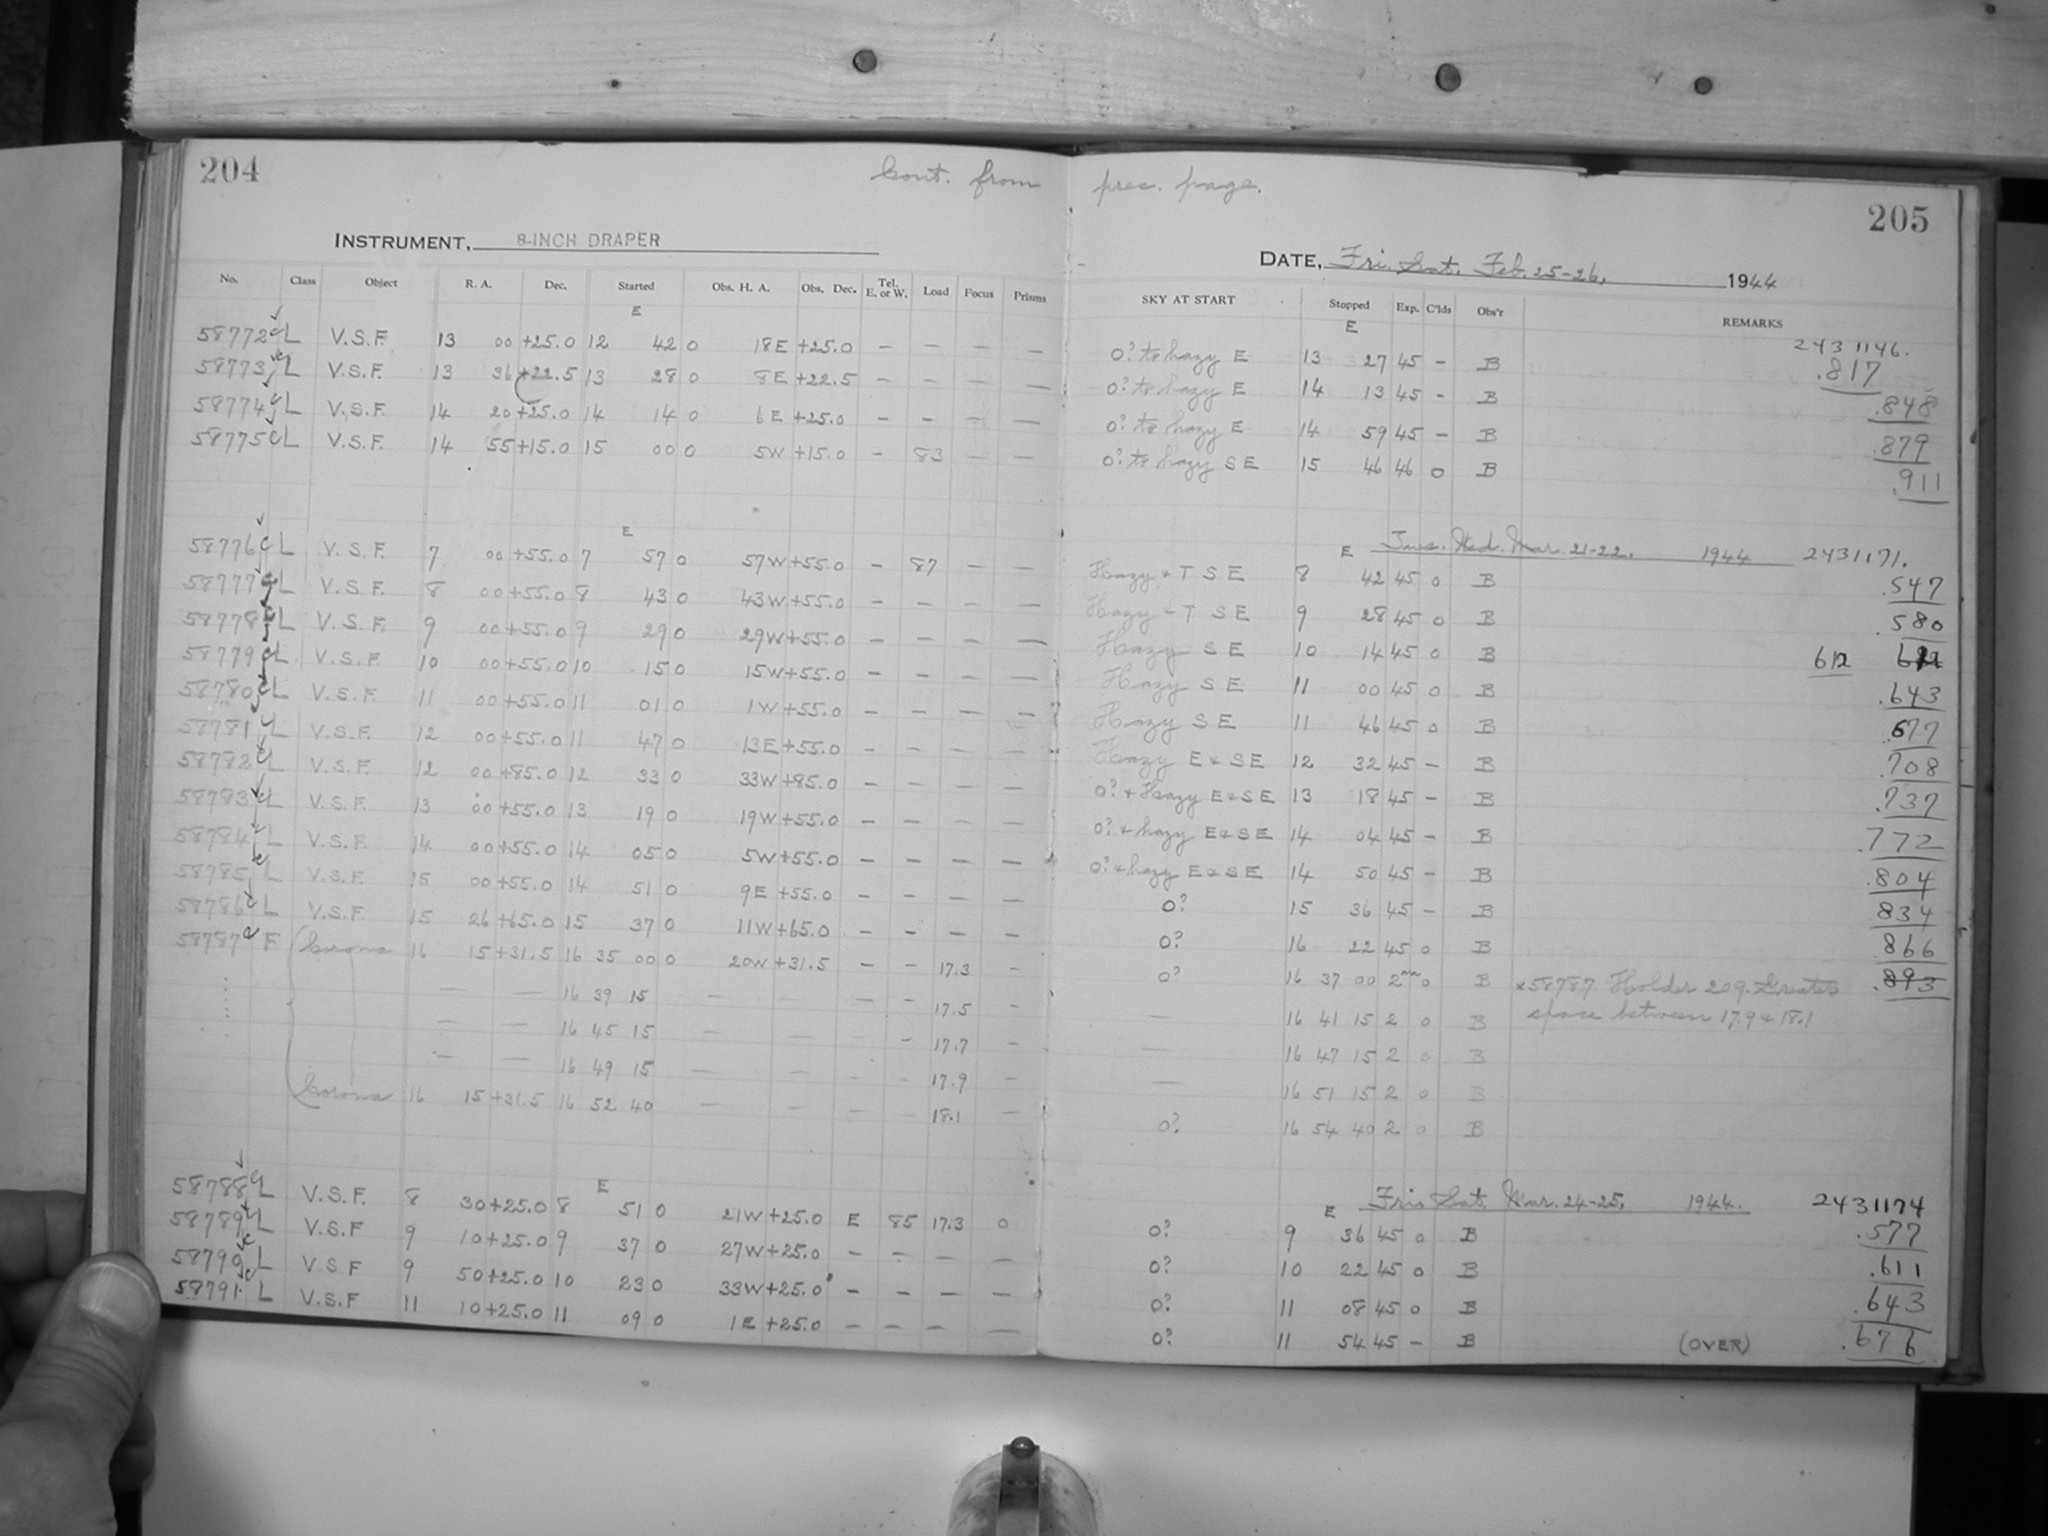 204
Cont. from prec. page.
205
INSTRUMENT, 8-INCH DRAPER
DATE, Fri. Sat. Feb. 25-26, 1944
No. Class Object R. A. Dec. Started Obs. H. A. Obs. Dec. Tel. E. or W. Load Focus Prisms SKY AT START Stopped Exp. C'lds Obs'r REMARKS
E E 2431146.
58772 c L V.S.F. 13 00 +25.0 12 42 0 18E +25.0 — — — — 0? to hazy E 13 27 45 – B .817
58773 c L V.S.F. 13 36 +22.5 13 28 0 8E +22.5 — — — — 0? to hazy E 14 13 45 – B .848
58774 c L V.S.F. 14 20 +25.0 14 14 0 6E +25.0 — — — — 0? to hazy E 14 59 45 – B .879
58775 c L V.S.F. 14 55 +15.0 15 00 0 5W +15.0 – 83 — — 0? to hazy SE 15 46 46 0 B .911
E E Tues. Wed. Mar. 21-22, 1944 2431171.
58776 c L V.S.F. 7 00 +55.0 7 57 0 57W +55.0 – 87 – — Hazy + T SE 8 42 45 0 B .547
58777 c L V.S.F. 8 00 +55.0 8 43 0 43W +55.0 – – – — Hazy – T SE 9 28 45 0 B .580
58778 c L V.S.F. 9 00 +55.0 9 29 0 29W +55.0 – – – — Hazy SE 10 14 45 0 B 612
58779 c L V.S.F. 10 00 +55.0 10 15 0 15W +55.0 – – – — Hazy SE 11 00 45 0 B .643
58780 c L V.S.F. 11 00 +55.0 11 01 0 1W +55.0 – – – — Hazy SE 11 46 45 0 B .677
58781 c L V.S.F. 12 00 +55.0 11 47 0 13E +55.0 – – – — Hazy E & SE 12 32 45 – B .708
58782 c L V.S.F. 12 00 +85.0 12 33 0 33W +85.0 – – – — 0? + Hazy E & SE 13 18 45 – B .737
58783 c L V.S.F. 13 00 +55.0 13 19 0 19W +55.0 – – – — 0? & hazy E & SE 14 04 45 – B .772
58784 c L V.S.F. 14 00 +55.0 14 05 0 5W +55.0 – – – — 0? & hazy E & SE 14 50 45 – B .804
58785 c L V.S.F. 15 00 +55.0 14 51 0 9E +55.0 – – – — 0? 15 36 45 – B 834
58786 c L V.S.F. 15 26 +65.0 15 37 0 11W +65.0 – – – — 0? 16 22 45 0 B 866
58787 c F Corona 16 15 +31.5 16 35 00 0 20W +31.5 – – 17.3 – 0? 16 37 00 2m 0 B x58787 Holder 209. Greater .893
— — 16 39 15 — — – – 17.5 – — 16 41 15 2 0 B space between 17.9 & 18.1
— — 16 45 15 — — – – 17.7 – — 16 47 15 2 0 B
— — 16 49 15 — — – – 17.9 – — 16 51 15 2 0 B
Corona 16 15 +31.5 16 52 40 — — – – 18.1 – 0? 16 54 40 2 0 B
E E Fri. Sat. Mar. 24-25, 1944. 2431174
58788 c L V.S.F. 8 30 +25.0 8 51 0 21W +25.0 E 85 17.3 0 0? 9 36 45 0 B .577
58789 c L V.S.F 9 10 +25.0 9 37 0 27W +25.0 – – – — 0? 10 22 45 0 B .611
58790 c L V.S.F 9 50 +25.0 10 23 0 33W +25.0 – – – — 0? 11 08 45 0 B .643
58791 c L V.S.F 11 10 +25.0 11 09 0 1E +25.0 – – – — 0? 11 54 45 – B (OVER) .676